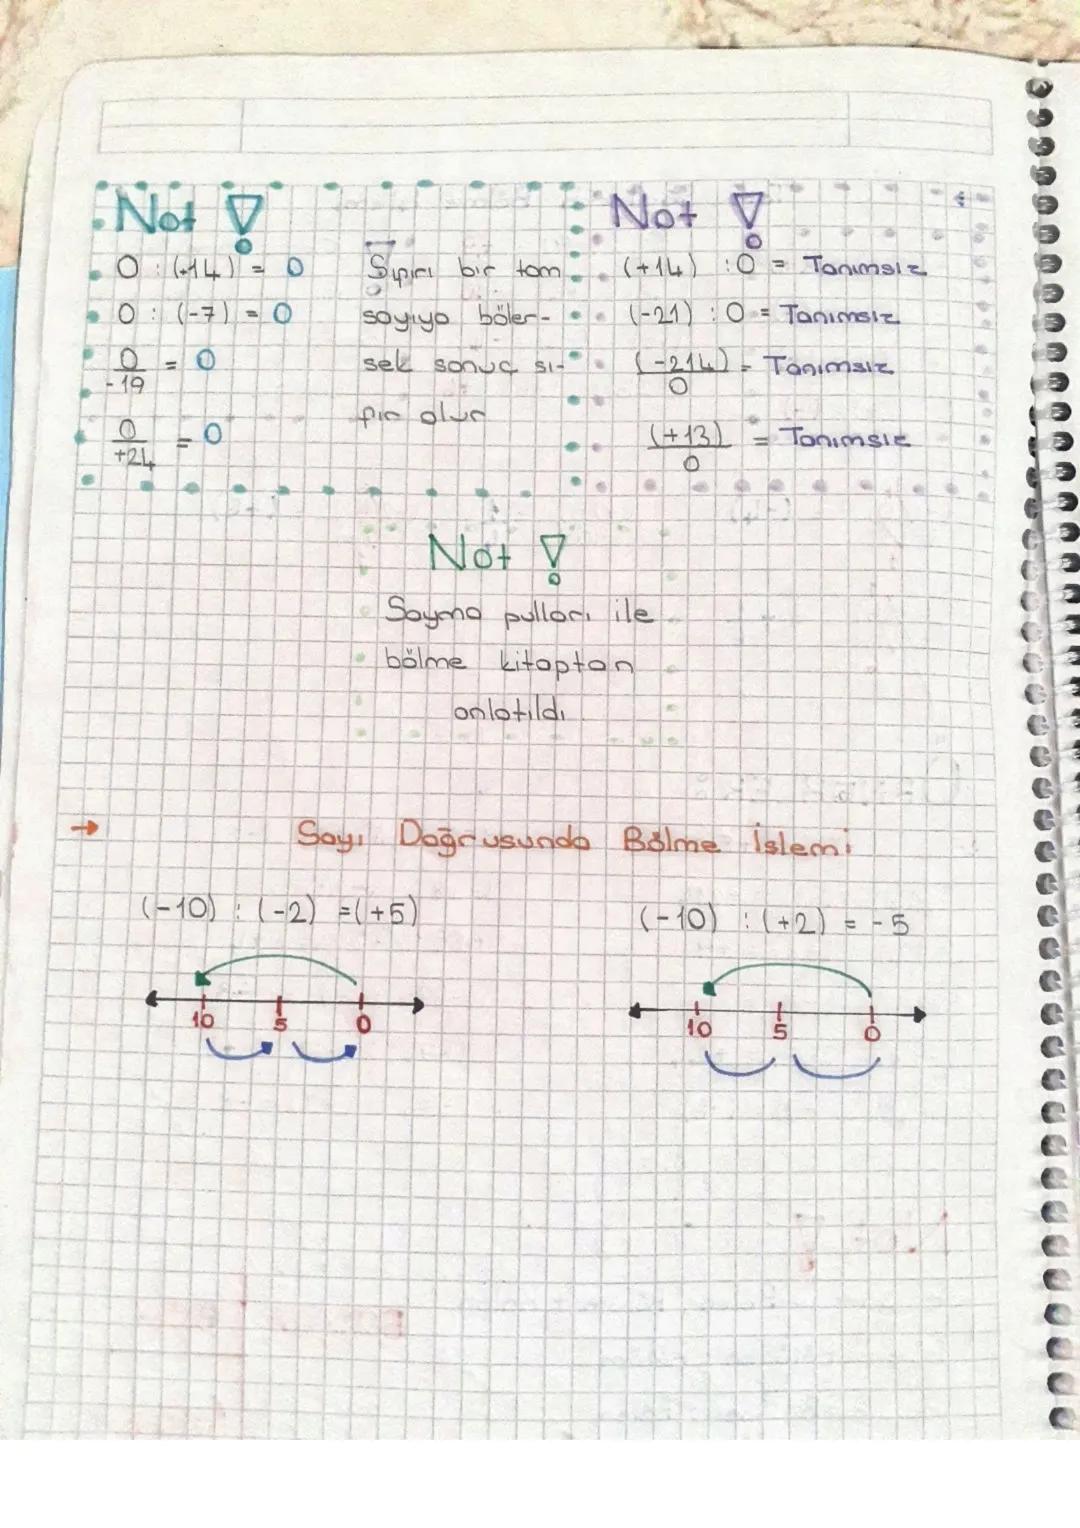 Not !
0 : (+14) = 0
0 : (-7) = 0
0/-19 = 0
0/+24 = 0
Sıfırı bir tam
sayıya böler-
sek sonuç sı-
fır olur
Not !
(+14) : 0 = Tanımsız
(-21) : 0 = Tanımsız
(-214)/0 = Tanımsız
(+13)/0 = Tanımsız
Not !
Sayma pulları ile
bölme kitaptan
anlatıldı
→ Sayı Doğrusunda Bölme İşlemi
(-10) : (-2) = (+5)
10 5 0
(-10) : (+2) = -5
10 5 0